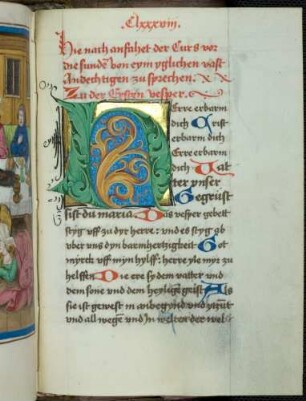 Clxxxviij
Hie nach anfahet der Curs vor
die sunden von eym yglichen vast
Andechtigen zu sprechen.
Zu der Ersten vesper.
Herre erbarm
dich Crist
erbarm dich
Herre erbarm
dich Vat
ter vnser
Gegrüst
sist du maria Dis vesper gebett
styg vff zu dyr herre: vnd es styg ab
vber vns dyn barmhertzigkeit Got
myrck vff myn hylff: herre yle myr zu
helffen Die ere sy dem vatter und
dem sone vnd dem heyligen geist Als
sie ist gewest in anbegynd und ytzunt
vnd all wege vnd in welten der welt